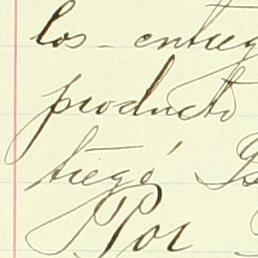 los entreg
producto
tregó
Por